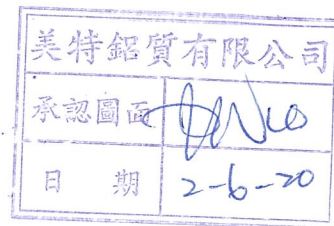 美特鋁質有限公司
承認圖面
日期 2-6-20